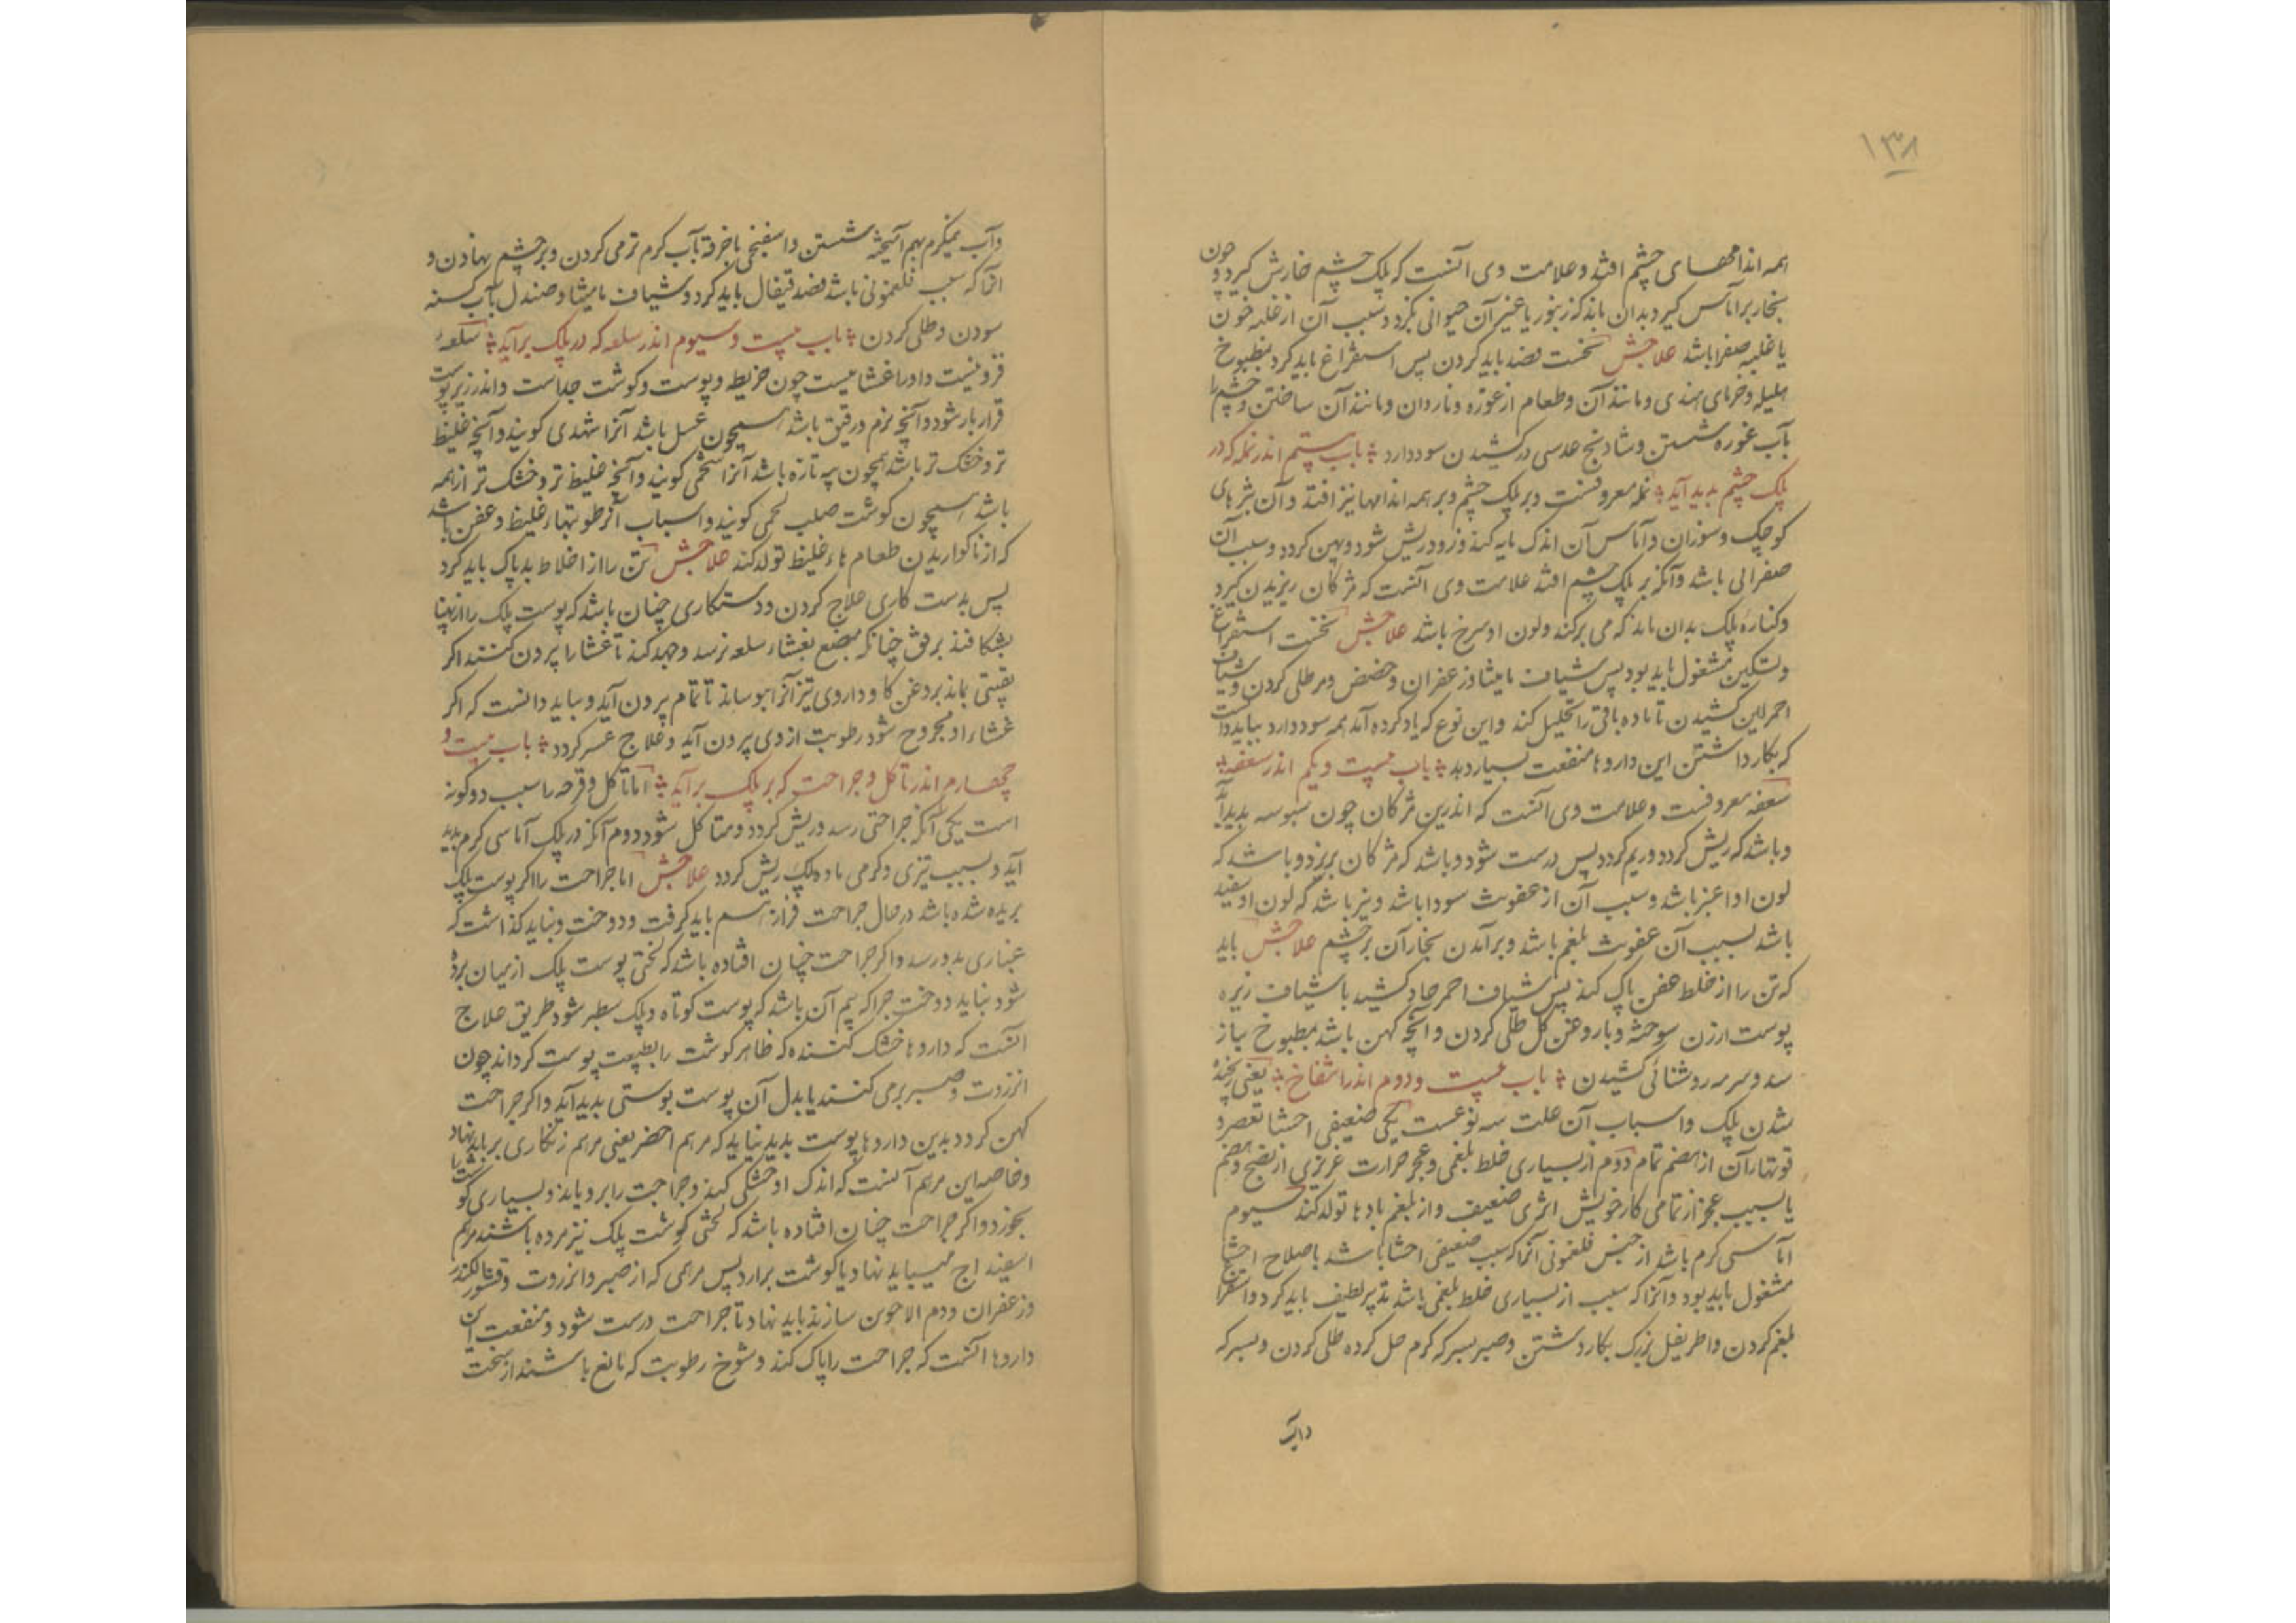 ۱۳۸
همه اندامهای چشم افتد و علامت وی آنست که پلک چشم خارش گیرد و چون
بخار برآماس گیرد بدان ماند که زنبور یا غیر آن حیوانی بگزد و سبب آن از غلبه خون
یا غلبه صفرا باشد علاجش نخست فصد باید کردن پس استفراغ باید کرد بمطبوخ
هلیله و خرمای هندی و مانند آن و طعام از غوره و ناردان و مانند آن ساختن و چشم را
بآب غوره شستن و شادنج عدسی درکشیدن سود دارد باب بیستم اندر نمله که در
پلک چشم پدید آید نمله معروفست و بر پلک چشم و بر همه اندامها نیز افتد و آن بثرهای
کوچک و سوزان و آماس آن اندک مایه کند و زود ریش شود و پهن گردد و سبب آن
صفرائی باشد و آنکه بر پلک چشم افتد علامت وی آنست که مژگان ریزیدن گیرد
و کناره پلک بدان ماند که می برکند و لون او سرخ باشد علاجش نخست استفراغ
و تسکین مشغول باید بود پس شیاف مامیثا و زعفران و حضض و مر طلی کردن و شیاف
احمر لین کشیدن تا ماده باقی را تحلیل کند و این نوع که یاد کرده آمد همه سود دارد بباید دانست
که بکار داشتن این داروها منفعت بسیار دهد باب بیست و یکم اندر سعفه
سعفه معروفست و علامت وی آنست که اندرین مژگان چون سبوسه پدید آید
و باشد که ریش گردد و ریم گردد پس درست شود و باشد که مژگان بریزد و باشد که
لون او اغبر باشد و سبب آن از عفونت سودا باشد و نیز باشد که لون او سفید
باشد بسبب آن عفونت بلغم باشد و برآمدن بخار آن بر چشم علاجش باید
که تن را از خلط عفن پاک کند پس شیاف احمر حاد کشید با شیاف زیره
پوست ارزن سوخته و با روغن گل طلی کردن و آنچه کهن باشد بمطبوخ بیاز
سد و سرمه روشنائی کشیدن باب بیست و دوم اندر انتفاخ یعنی پخته
شدن پلک و اسباب آن علت سه نوعست یکی ضعیفی احشا تعصرو
قوتهار آن از هضم تمام دوم از بسیاری خلط بلغمی و عجز حرارت غریزی از نضج و هضم
یا بسبب عجز از تمامی کار خویش اثری ضعیف و از بلغم بادها تولد کند سیوم
آماسی گرم باشد از جنس فلغمونی آنرا که سبب ضعیفی احشا باشد باصلاح احشا
مشغول باید بود و آنرا که سبب از بسیاری خلط بلغمی باشد تدبیر لطیف باید کرد و استفراغ
بلغم کردن و اطریفل بزرگ بکار داشتن و صبر بسرکه گرم حل کرده طلی کردن و بسرکه
و آب
و آب نیمگرم بهم آمیخته شستن و اسفنجی یا خرقه بآب گرم تر می کردن و بر چشم نهادن و
آنرا که سبب فلغمونی باشد فصد قیفال باید کرد و شیاف مامیثا و صندل بآب کسنه
سودن و طلی کردن باب بیست و سیوم اندر سلعه که در پلک برآید سلعه
فزونیست و او را غشائیست چون خریطه و پوست و گوشت جداست و اندر زیر پوست
قرار بار شود و آنچه نرم و رقیق باشد همچون عسل باشد آنرا شهدی گویند و آنچه غلیظ
تر و خشک تر باشد همچون پیه تازه باشد آنرا شحمی گویند و آنچه غلیظ تر و خشک تر از همه
باشد همچون گوشت صلب لحمی گویند و اسباب آنرطوبتهار غلیظ و عفن باشد
که از ناگواریدن طعام هاء غلیظ تولد کند علاجش تن را از اخلاط بد پاک باید کرد
پس بدست کاری علاج کردن و دستکاری چنان باشد که پوست پلک را از پهنا
بشکافند برفق چنانکه مبضع بغشاء سلعه نرسد و جهد کند تا غشا را بیرون کنند اگر
بقیتی بماند بروغن گاو و داروی تیز آنرا بپوساند تا تمام بیرون آید و بباید دانست که اگر
غشاء او مجروح شود رطوبت از وی بیرون آید و علاج عسر گردد باب بیست و
چهارم اندر تاکل و جراحت که بر پلک برآید اما تاکل و قرحه را سبب دو گونه
است یکی آنکه جراحتی رسد و ریش گردد و متاکل شود دوم آنکه در پلک آماسی گرم پدید
آید و بسبب تیزی و گرمی ماده پلک ریش گردد علاجش اما جراحت را اگر پوست پلک
بریده شده باشد در حال جراحت فراز هم باید گرفت و دوخت و نباید گذاشت که
غباری بدو رسد و اگر جراحت چنان افتاده باشد که لختی پوست پلک از میان برده
شود نباید دوخت چرا که بیم آن باشد که پوست کوتاه و پلک سطبر شود طریق علاج
آنست که داروها خشک کننده که ظاهر گوشت را بطبیعت پوست گرداند چون
انزروت و صبر برمی کنند یا بدل آن پوست پوستی پدید آید و اگر جراحت
کهن گردد بدین داروها پوست پدید نیاید که مرهم اخضر یعنی مرهم زنگاری بر باید نهاد
و خاصه این مرهم آنست که اندک او خشکی کند و جراحت را برویاند و بسیاری گوشت را
بخورد و اگر جراحت چنان افتاده باشد که لختی گوشت پلک نیز مرده باشند مرهم
اسفیداج میباید نهاد یا گوشت برآرد پس مرهمی که از صبر و انزروت و قشور الکندر
و زعفران و دم الاخوین سازند باید نهاد تا جراحت درست شود و منفعت این
داروها آنست که جراحت را پاک کند و شوخ رطوبت که مانع باشند از سخت